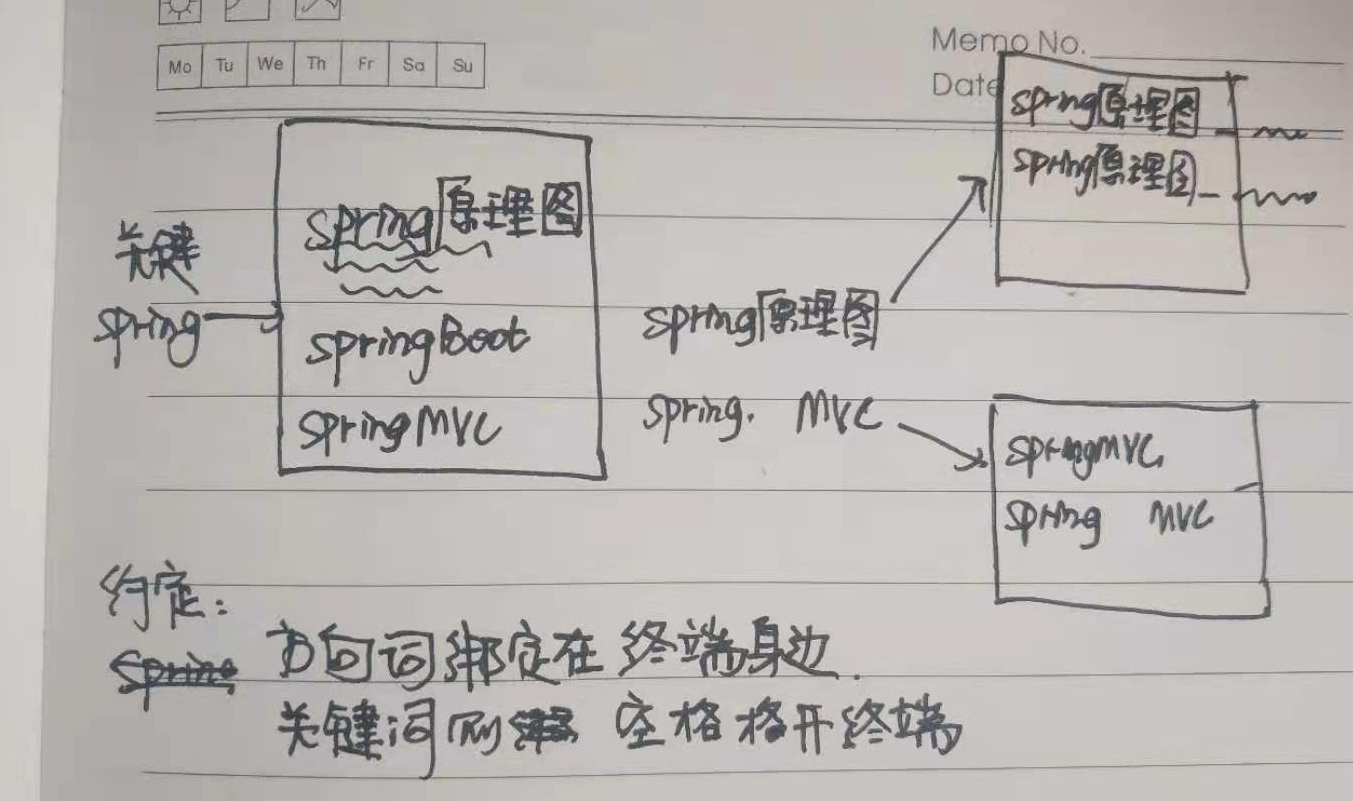 Mo Tu We Th Fr Sa Su
Memo No.
Date
spring原理图
spring原理图
spring原理图
关键
spring
springBoot
springMVC
spring原理图
spring. MVC
springMVC
spring MVC
约定:
spring
方向词绑定在终端身边.
关键词则 空格格开终端